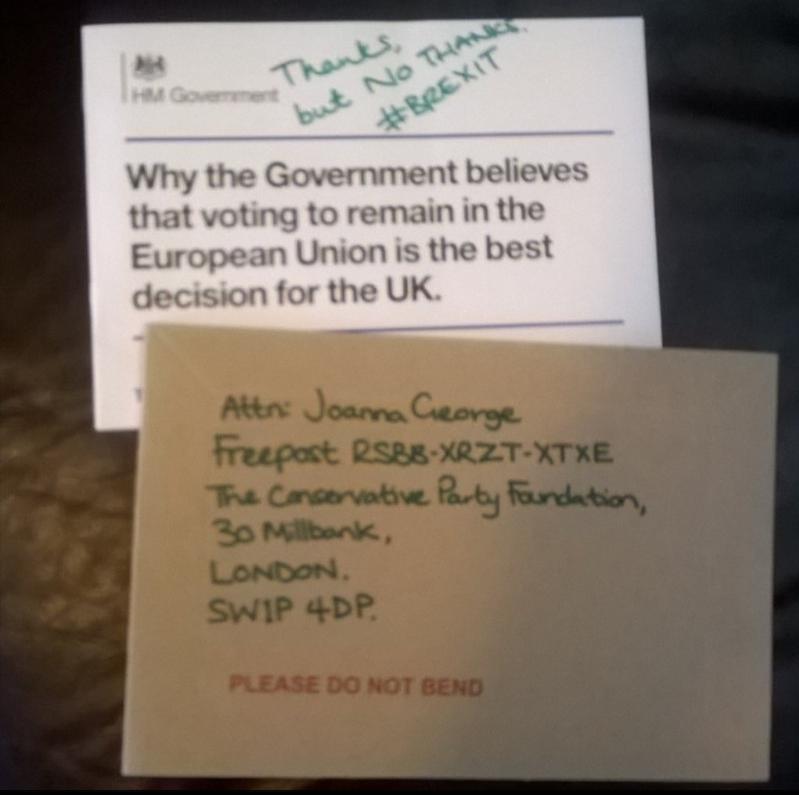 Thanks,
but NO THANKS.
#BREXIT
HM Government
Why the Government believes
that voting to remain in the
European Union is the best
decision for the UK.
Attn: Joanna George
Freepost RSBB-XRZT-XTXE
The Conservative Party Foundation,
30 Millbank,
LONDON.
SW1P 4DP.
PLEASE DO NOT BEND